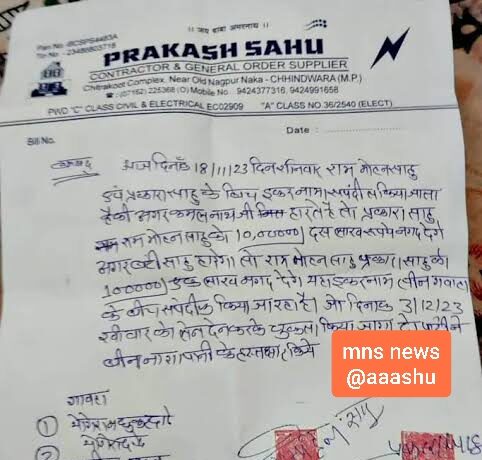 ॥ जय बाबा अमरनाथ ॥
Pan No.-BCSPS4483A
Tin No.-23486803716
PRAKASH SAHU
CONTRACTOR & GENERAL ORDER SUPPLIER
Chitrakoot Complex, Near Old Nagpur Naka - CHHINDWARA (M.P.)
☎ : (07162) 225368 (O) Mobile No. 9424377316, 9424991658
PWD 'C' CLASS CIVIL & ELECTRICAL EC02909 "A" CLASS NO.36/2540 (ELECT)
Bill No.
Date :
आज दिनाँक 18/11/23 दिन शनिवार राम मोहन साहु
एवं प्रकाश साहु के बिच इकरनामा संपंदीत किया जाता
है की अगर कमलनाथ जी हारते है तो प्रकाश साहु
राम मोहन साहु को 10,00000/ दस लाख रूपये नगद देंगे
अगर बंटी साहु हारेगा तो राम मोहन साहु प्रकाश साहु को
100000/ एक लाख नगद देंगे यह इकरनामा तीन गवाहो
के बीच संपंदीत किया जा रहा है। जो दिनाक 3/12/23
रवीवार को लेन देन करके किया जायेगा
के हस्ताक्षर किये
mns news
@aaashu
गावहा
①
②